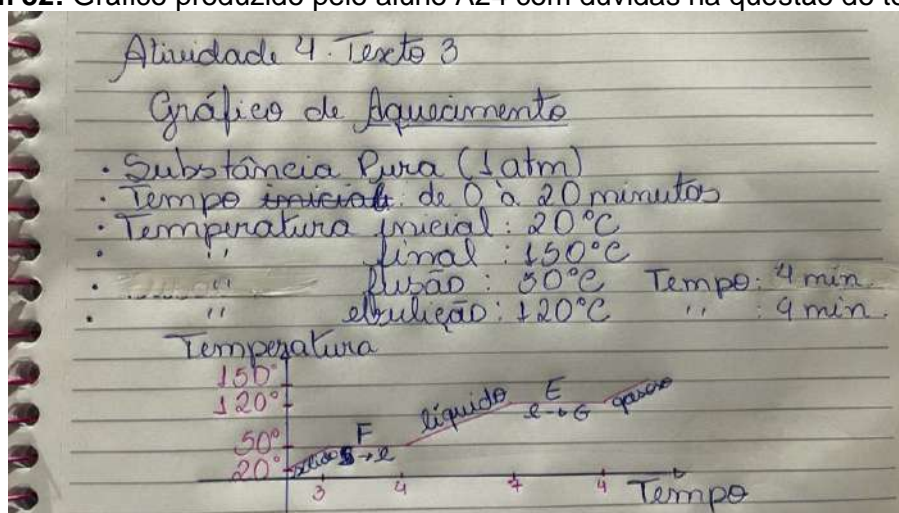 Gráfico produzido pelo aluno A24 com dúvidas na questão do te
Atividade 4. Texto 3
Gráfico de Aquecimento
• Substância Pura (1 atm)
• Tempo inicial: de 0 à 20 minutos
• Temperatura inicial: 20°C
• " final: 150°C
• " fusão: 50°C Tempo: 4 min.
• " ebulição: 120°C " : 9 min.
Temperatura
150°
120°
50°
20°
sólido F S→l líquido E l→G gasoso
3 4 7 4 Tempo